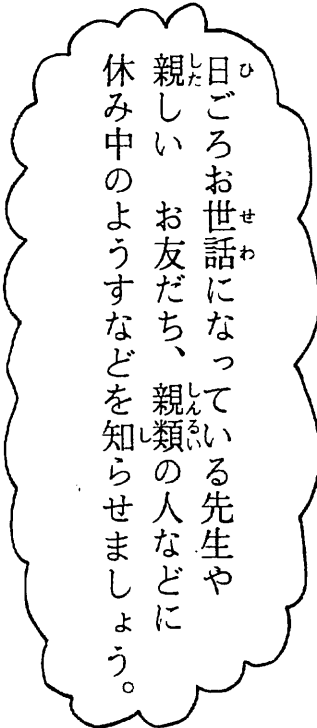 日ごろお世話になっている先生や
親しい　お友だち、親類の人などに
休み中のようすなどを知らせましょう。